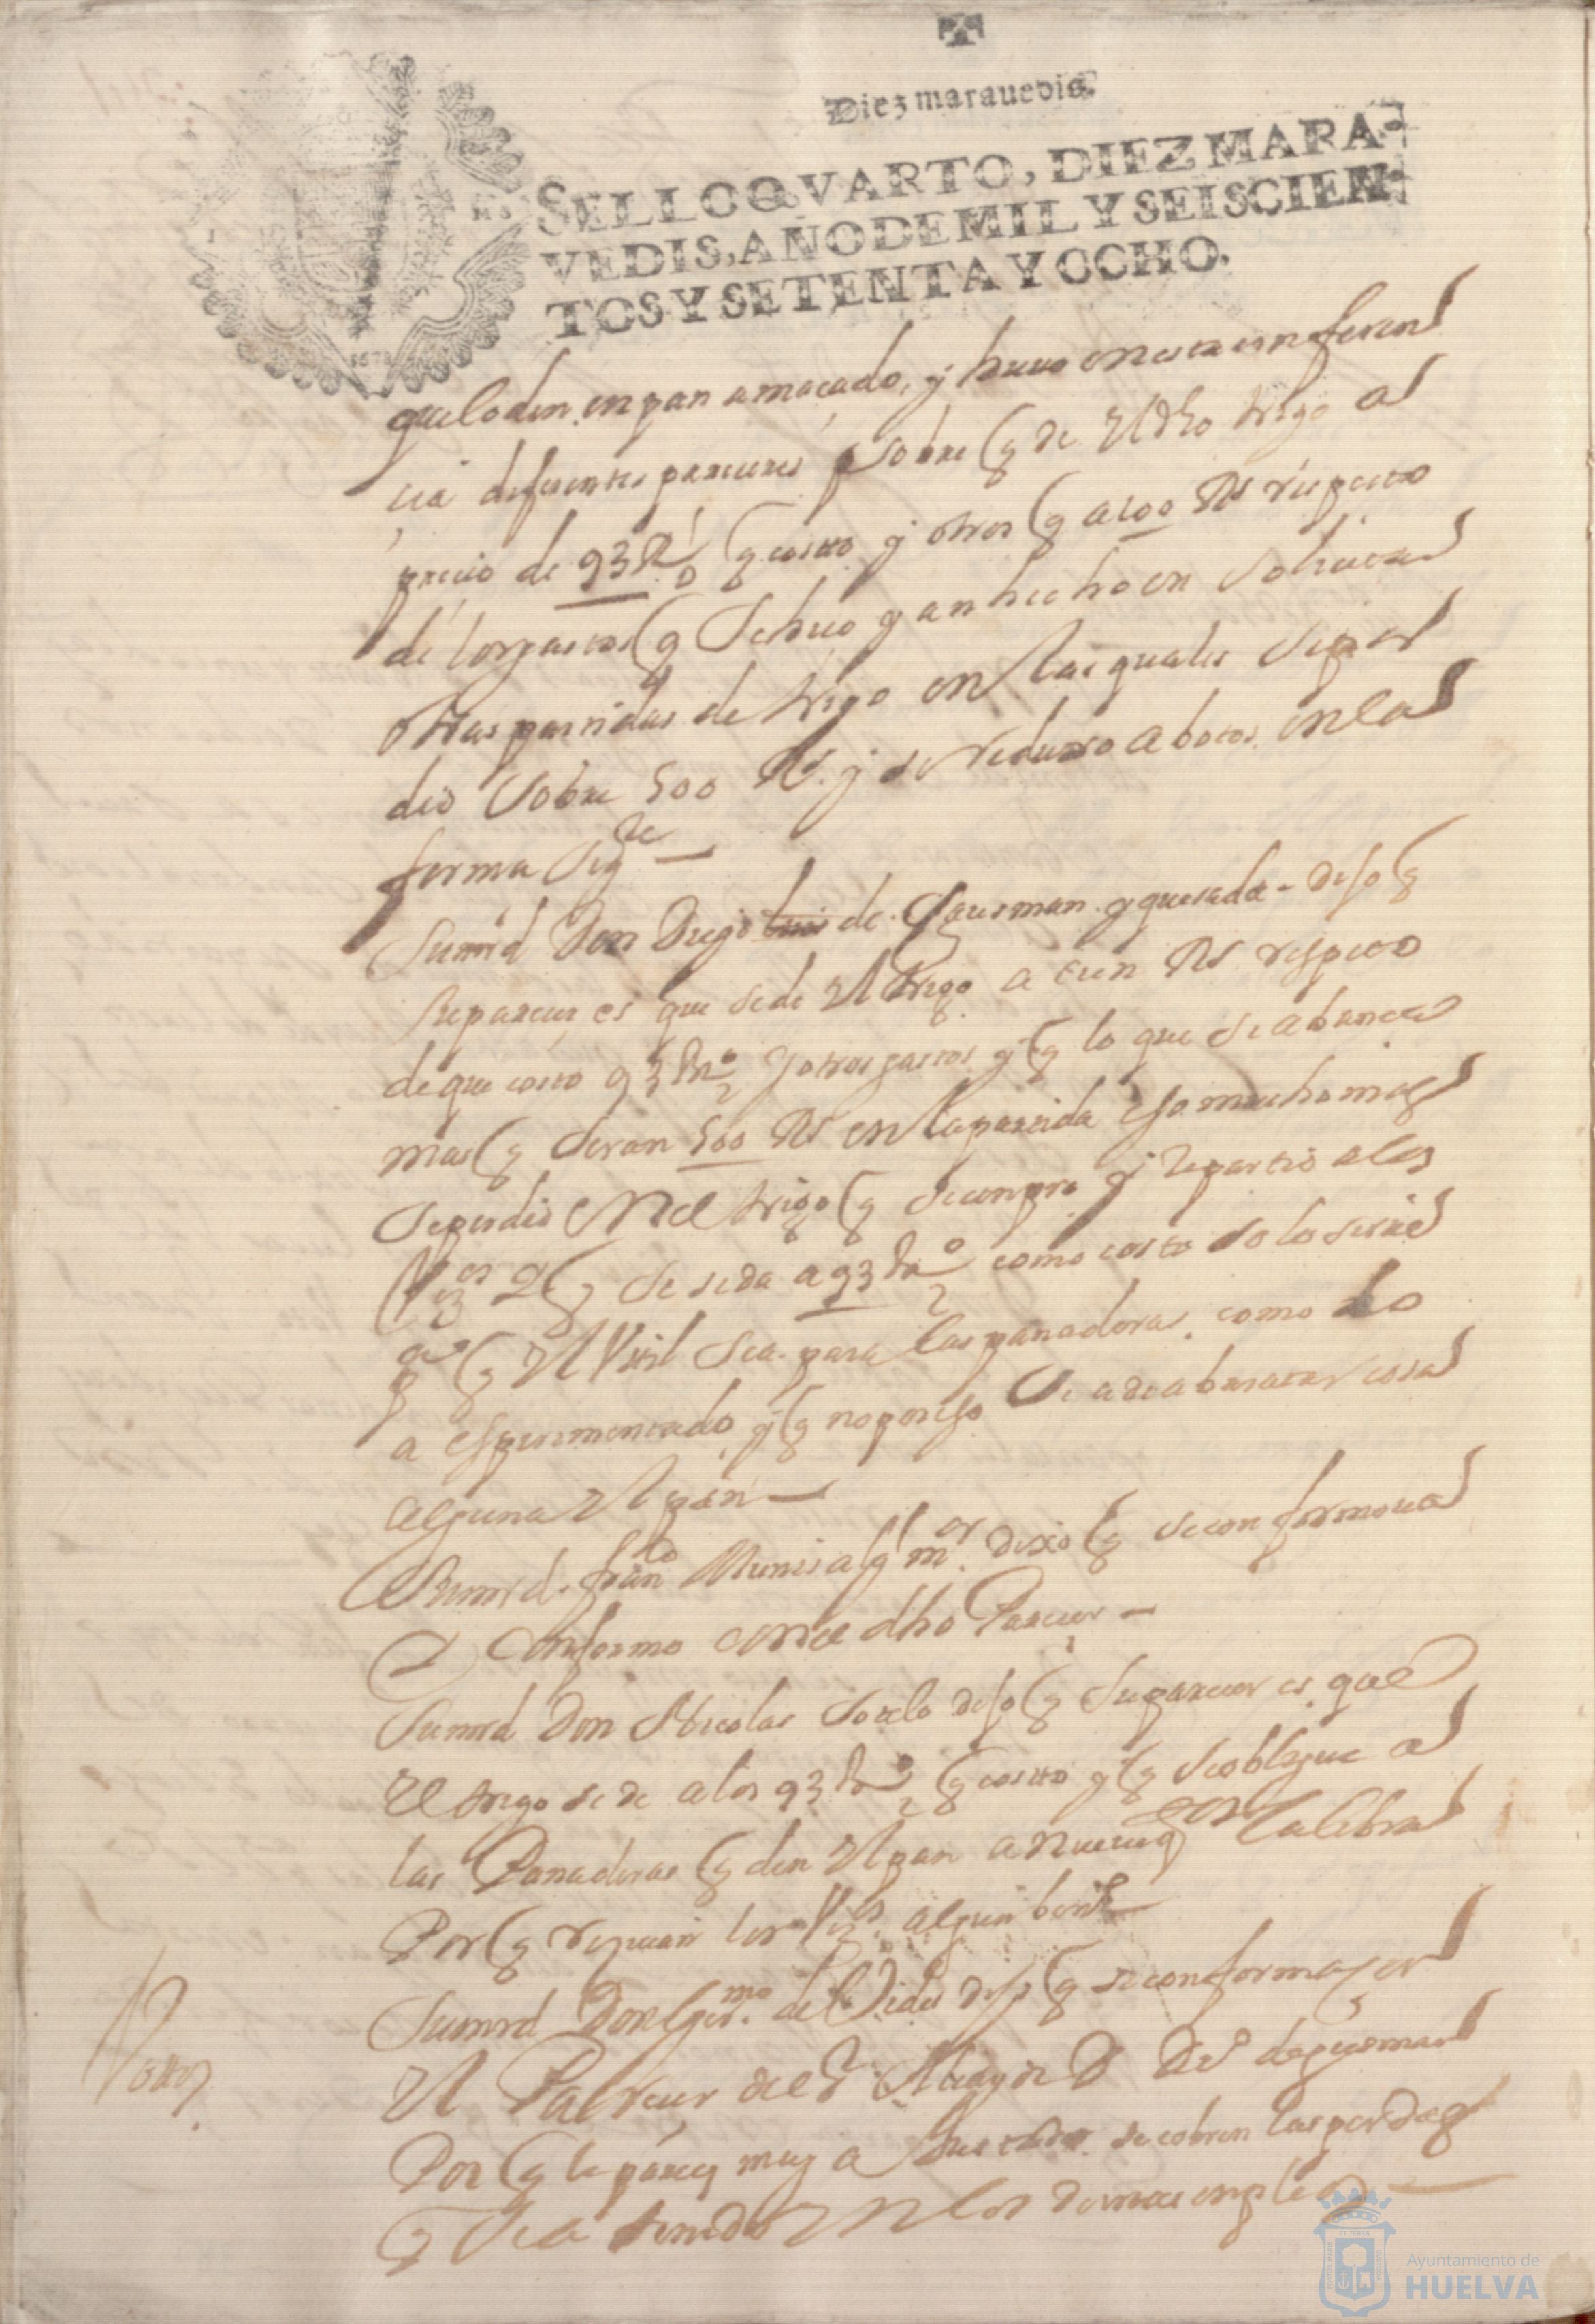 Diez marauedis.
SELLO QVARTO, DIEZ MARA-
VEDIS, AÑO DE MIL Y SEISCIEN-
TOS Y SETENTA Y OCHO.
1678
que lo den en pan amaçado, y huuo en esta conferen
cia diferentes pareceres sobre q de el dho trigo al
precio de 93 Rs q costo y otros q a 100 Rs respecto
de los gastos q se hiço y an hecho en solicitar
otras partidas de trigo en las quales se per
dio sobre 500 Rs. y se reduxo a botos en la
forma sigte
Sumrd Don Diego de Gausman y quesada - dijo q
su parecer es que se de el trigo a cien Rs respecto
de que costo 93 Rs y otros gastos y q lo que se abança
mas q seran 500 Rs en la partida eso mucho mas
se perdio en el trigo q se conpro y repartio a los
Vzos q se se da a 93 Rs como costo solo serue
pa q el Util sea para las panaderas como lo
a esperimentado y q no por eso se a de abaratar cosa
alguna el pan
Sumrd. franco Munis algl mor dixo q se conformaua
y Conformo con el dho Parecer
Sumrd Don Nicolas Sotelo dijo q su parecer es que
el trigo se de a los 93 Rs q costo y q se obligue a
las Panaderas q den el pan a nueue qtos la libra
Por q reciuan los Vzos algun benefo
Sumrd Don Germo de Vides dijo q se conforma con
el Parecer del Sr Alcayde D Do de gusman
Por q le parece muy a se cobren las perdas
q se a tenido en los demas enpleos
Votos
Ayuntamiento de
HUELVA